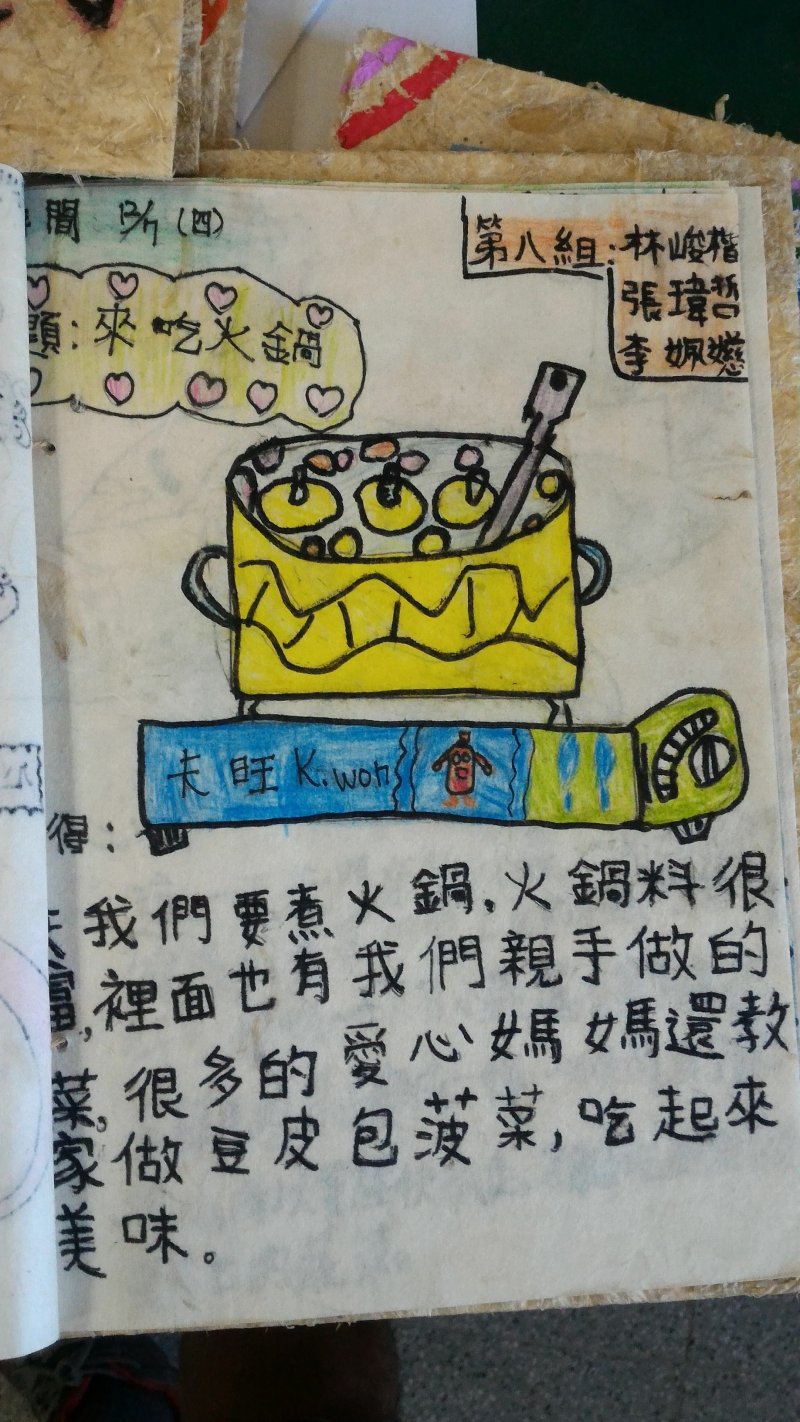 間 12/7 (四)
第八組:林峻楷
張瑋哲
李姵嬨
題:來吃火鍋
夫旺 K.won
得:
天我們要煮火鍋,火鍋料很
富,裡面也有我們親手做的
菜,很多的愛心媽媽還教
家做豆皮包菠菜,吃起來
美味。